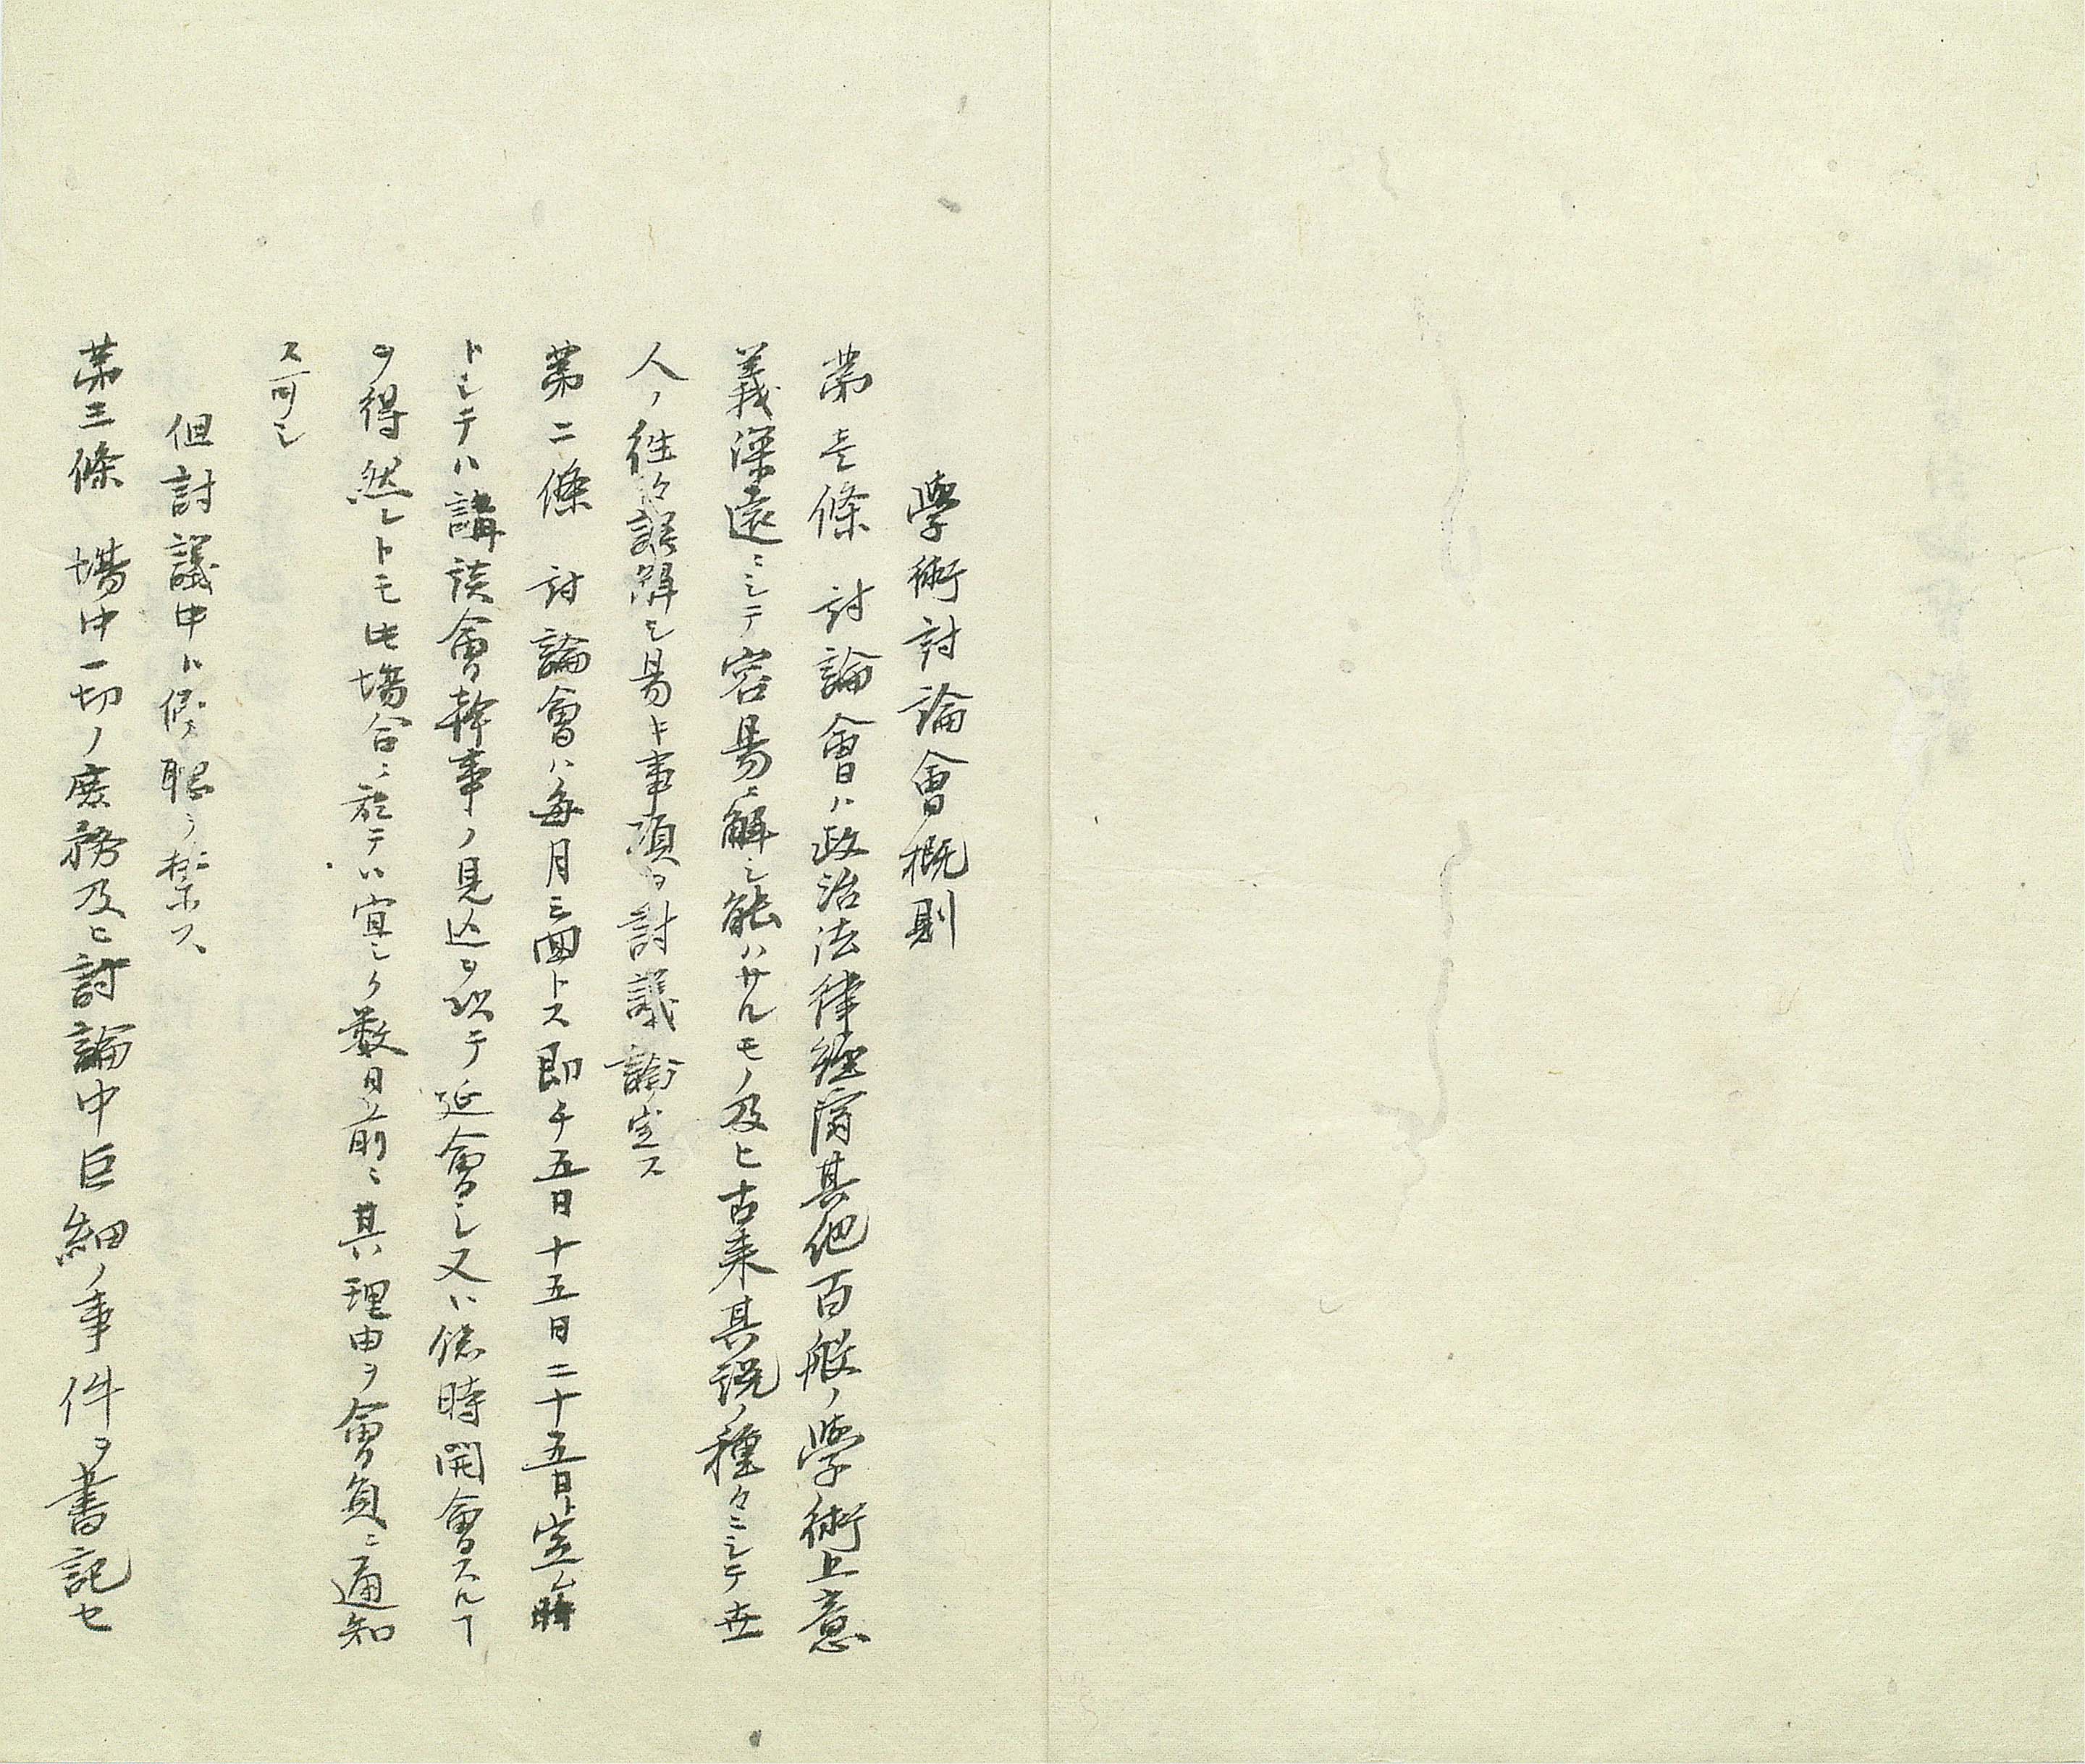 學術討論會概則
第壱條　討論會ハ政治法律經濟其他百般ノ學術上意
義深遠ニシテ容昜ニ解シ能ハサルモノ及ヒ古来其説ノ種々ニシテ世
人ノ往々誤解シ昜キ事項ヲ討議論定ス
第二條　討論會ハ毎月三回トス即チ五日十五日二十五日ト定ム時
トシテハ講談會幹事ノ見込ヲ以テ延會シ又ハ臨時開會スルヿ
ヲ得然レトモ此塲合ニ於テハ宜シク数日前ニ其理由ヲ會員ニ通知
ス可シ
但討議中ハ假眠ヲ禁ス
第三條　塲中一切ノ庶務及ヒ討論中巨細ノ事件ヲ書記セ